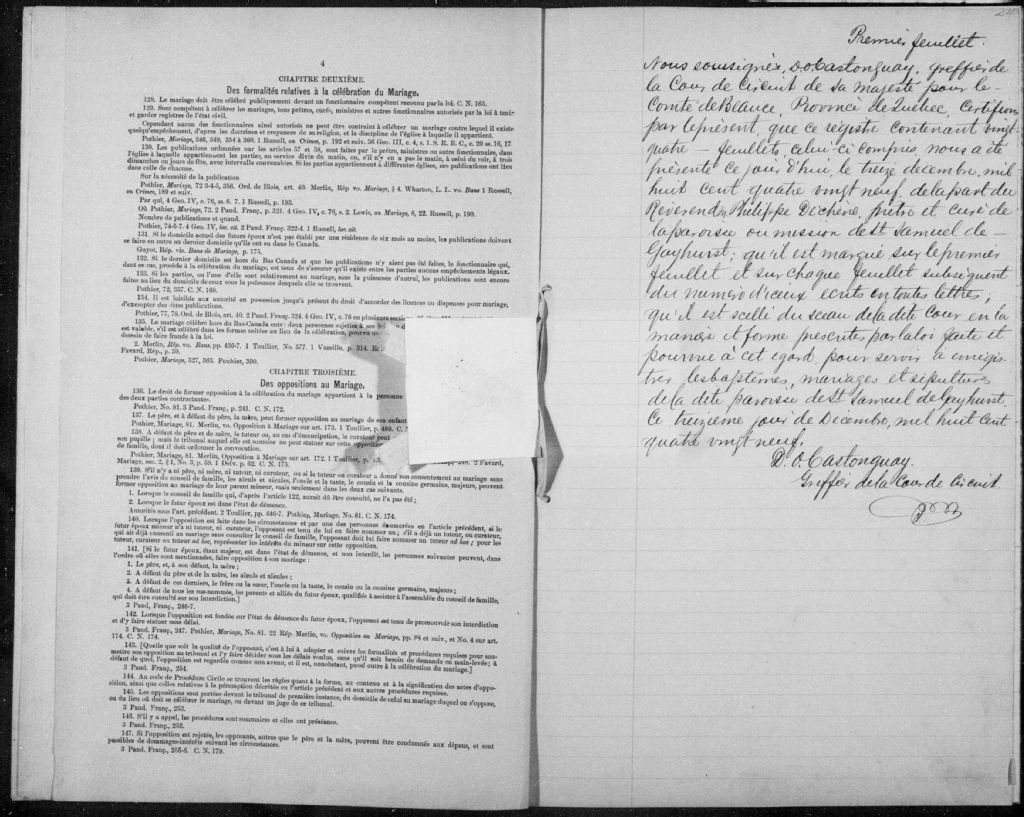 4
CHAPITRE DEUXIÈME.
Des formalités relatives à la célébration du Mariage.
128. Le mariage doit être célébré publiquement devant un fonctionnaire compétent reconnu par la loi. C. N. 165.
129. Sont compétent à célébrer les mariages, tous prêtres, curés, ministres et autres fonctionnaires autorisés par la loi à tenir
et garder registres de l'état civil.
Cependant aucun des fonctionnaires ainsi autorisés ne peut être contraint à célébrer un mariage contre lequel il existe
quelqu'empêchement, d'après les doctrines et croyances de sa religion, et la discipline de l'église à laquelle il appartient.
Pothier, Mariage, 346, 349, 354 à 360. 1 Russell, on Crimes, p. 192 et suiv. 36 Geo. III, c. 4, s. 1. S. R. B. C., c. 20 ss. 16, 17.
130. Les publications ordonnées par les articles 57 et 58, sont faites par le prêtre, ministre ou autre fonctionnaire, dans
l'église à laquelle appartiennent les parties, au service divin du matin, ou, s'il n'y en a pas le matin, à celui du soir, à trois
dimanches ou jours de fête, avec intervalle convenables. Si les parties appartiennent à différentes églises, ces publications ont lieu
dans celle de chacune.
Sur la nécessité de la publication
Pothier, Mariage, 72 3-4-5, 356. Ord. de Blois, art. 40. Merlin, Rép vo. Mariage, § 4. Wharton, L. L. vo. Bans 1 Russell,
on Crimes, 189 et suiv.
Par qui, 4 Geo. IV, c. 76, ss. 6. 7. 1 Russell, p. 193.
Où Pothier, Mariage, 72. 2 Pand. Franç. p. 321. 4 Geo. IV, c. 76, s. 2. Lewis, on Mariage, 8, 22. Russell, p. 190.
Nombre de publications et quand.
Pothier, 74-5-7. 4 Geo. IV, loc. cit. 2 Pand. Franç. 322-4. 1 Russell, loc. cit.
131. Si le domicile actuel des futurs époux n'est pas établi par une résidence de six mois au moins, les publications doivent
se faire en outre au dernier domicile qu'ils ont eu dans le Canada.
Guyot, Rép. vis. Bans de Mariage, p. 175.
132. Si le dernier domicile est hors du Bas Canada et que les publications n'y aient pas été faites, le fonctionnaire qui,
dant ce cas, procède à la célébration du mariage, est tenu de s'assurer qu'il existe entre les parties aucuns empêchements légaux.
133. Si les parties, ou l'une d'elle sont relativement au mariage, sous la puissance d'autrui, les publications sont encore
faites au lieu du domicile de ceux sous la puissance desquels elle se trouvent.
Pothier, 72, 357. C. N. 168.
134. Il est loisible aux autorité en possession jusqu'à présent du droit d'accorder des licences ou dispenses pour mariage,
d'exempter des dites publications.
Pothier, 77, 78. Ord. de Blois, art. 40. 2 Pand Franç. 324. 4 Geo. IV, c. 76 en plusieurs
135. Le mariage célébré hors du Bas-Canada entre deux personnes sujettes à ses
est valable, s'il est célébré dans les formes usitées au lieu de la célébration, pourvu
dessein de faire fraude à la loi.
2. Merlin, Rép. vo. Bans, pp. 436-7. 1 Toullier, No. 577. 1 Vazeille, p. 314.
Favard, Rép., p. 30.
Pothier, Mariage, 327, 363. Poulier, 390.
CHAPITRE TROISIÈME.
Des oppositions au Mariage.
136. Le droit de former opposition à la célébration du mariage appartient à la personne
des deux parties contractantes.
Pothier, No. 81. 3 Pand. Franç., p. 241. C. N. 172.
137. Le père, et à défaut du père, la mère, peut former opposition au mariage de son enfant
Pothier, Mariage, 81. Merlin, vo. Opposition à Mariage sur art. 173. 1 Toullier, p. 489. C.
138. A défaut de père et de mère, le tuteur ou, au cas d'émancipation, le curateur peut
son pupille; mais le tribunal auquel elle est soumise ne peut statuer sur cette opposition
de famille, dont il doit ordonner la convocation.
Pothier, Mariage, 81. Merlin, Opposition à Mariage sur art. 172. 1 Toullier, p. 2 Favard,
Mariage, sec. 2, § 1, No. 3, p. 59. 1 Delv. p. 62. C. N. 175.
139. S'il n'y a ni père, ni mère, ni tuteur, ni curateur, ou si le tuteur ou curateur a donné son consentement au mariage sans
prendre l'avis du conseil de famille, les aïeuls et aïeules, l'oncle et la tante, le cousin et la cousine germains, majeurs, peuvent
former opposition au mariage de leur parent mineur, mais seulement dans les deux cas suivants.
1. Lorsque le conseil de famille qui, d'après l'article 122, aurait dû être consulté, ne l'a pas été;
2. Lorsque le futur époux est dans l'état de démence.
Autorités sous l'art. précédent. 2 Toullier, pp. 446-7. Pothier, Mariage, No. 81. C. N. 174.
140. Lorsque l'opposition est faite dans les circonstances et par une des personnes énumérées en l'article précédent, si le
futur époux mineur n'a ni tuteur, ni curateur, l'opposant est tenu de lui en faire nommer un; s'il a déjà un tuteur, ou curateur,
qui ait déjà consenti au mariage sans consulter le conseil de famille, l'opposant doit lui faire nommer un tuteur ad hoc; pour les
tuteur, curateur ou tuteur ad hoc, représenter les intérêts du mineur sur cette opposition.
141. [Si le futur époux, étant majeur, est dans l'état de démence, et non interdit, les personnes suivantes peuvent, dans
l'ordre où elles sont mentionnées, faire opposition à son mariage:
1. Le père, et, à son défaut, la mère;
2. A défaut du père et de la mère, les aïeuls et aïeules;
3. A défaut de ces derniers, le frère ou la sœur, l'oncle ou la tante, le cousin ou la cousine germains, majeurs;
4. A défaut de tous les sus-nommés, les parents et alliés du futur époux, qualifiés à assister à l'assemblée du conseil de famille,
qui doit être consulté sur son interdiction.]
3 Pand, Franç., 246-7.
142. Lorsque l'opposition est fondée sur l'état de démence du futur époux, l'opposant est tenu de promouvoir son interdiction
et d'y faire statuer sans délai.
3 Pand. Franç., 247. Pothier, Mariage, No. 81. 22 Rép. Merlin, vo. Opposition au Mariage, pp. 98 et suiv., et No. 4 sur art.
174. C. N. 174.
143. [Quelque que soit la qualité de l'opposant, c'est à lui à adopter et suivre les formalités et procédures requises pour sou-
mettre son opposition au tribunal et l'y faire décider sous les délais voulus, sans qu'il soit besoin de demande en main-levée; à
défaut de quoi, l'opposition est regardée comme non avenu, et il est, nonobstant, passé outre à la célébration du mariage.]
3 Pand. Franç., 254.
144. Au code de Procédure Civile se trouvent les règles quant à la forme, au contenu et à la signification des actes d'oppo-
sition, ainsi que celles relatives à la péremption décrétée en l'article précédent et aux autres procédures requises.
145. Les oppositions sont portées devant le tribunal de première instance, du domicile de celui au mariage duquel on s'oppose,
ou du lieu où doit se célébrer le mariage, ou devant un juge de ce tribunal.
3 Pand. Franç., 253.
146. S'il y a appel, les procédures sont sommaires et elles ont préséance.
3 Pand. Franç., 253.
147. Si l'opposition est rejetée, les opposants, autres que le père et la mère, peuvent être condamnés aux dépens, et sont
passibles de dommages-intérêts suivant les circonstances.
3 Pand. Franç., 255-6. C. N. 179.
Premier feuillet.
Nous soussignée, D. O. Castonguay, greffier de
la Cour de Circuit de Sa Majesté pour le
Comté de Beauce, Province de Québec, Certifions
par le présent, que ce registre contenant vingt
quatre — feuillets, celui-ci compris, nous a été
présenté ce jour d'hui, le treize decembre, mil
huit cent quatre vingt neuf, de la part du
Révérend Philippe Dechène, prêtre et curé de
la paroisse ou mission de St Samuel de —
Gayhurst; qu'il est marqué sur le premier
feuillet et sur chaque feuillet subsequent
du numéro d'iceux ecrits en toutes lettres;
qu'il est scellé du sceau de la dite Cour en la
manière et forme presentes par la loi faite et
pourvue à cet egard pour servir à enregis-
trer les baptêmes, mariages et sépultures
de la dite paroisse de St Samuel de Gayhurst.
Ce treizieme jour de Décembre, mil huit cent
quatre vingt neuf.
D. O. Castonguay.
Greffier de la Cour de Circuit